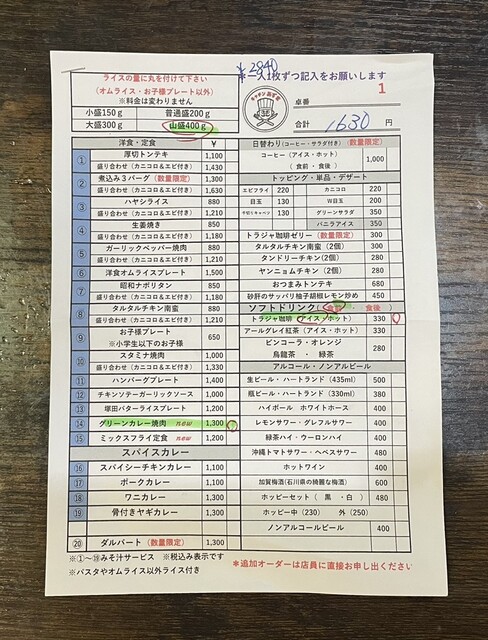 ¥2840
ライスの量に丸を付けて下さい
(オムライス・お子様プレート以外)
※料金は変わりません
小盛150g 普通盛200g
大盛300g 山盛400g
*一人1枚ずつ記入をお願いします
1
卓番
合計 1630 円
洋食・定食 ¥
① 厚切トンテキ 1,100
盛り合わせ(カニコロ&エビ付き) 1,430
② 煮込み3バーグ(数量限定) 1,300
盛り合わせ(カニコロ&エビ付き) 1,630
③ ハヤシライス 880
盛り合わせ(カニコロ&エビ付き) 1,210
④ 生姜焼き 850
盛り合わせ(カニコロ&エビ付き) 1,180
⑤ ガーリックペッパー焼肉 880
盛り合わせ(カニコロ&エビ付き) 1,210
⑥ 洋食オムライスプレート 1,500
⑦ 昭和ナポリタン 850
盛り合わせ(カニコロ&エビ付き) 1,180
⑧ タルタルチキン南蛮 880
盛り合わせ(カニコロ&エビ付き) 1,210
⑨ お子様プレート 650
※小学生以下のお子様
⑩ スタミナ焼肉 1,000
盛り合わせ(カニコロ&エビ付き) 1,330
⑪ ハンバーグプレート 1,400
⑫ チキンソテーガーリックソース 1,000
⑬ 塚田バターライスプレート 1,200
⑭ グリーンカレー焼肉 new 1,300
⑮ ミックスフライ定食 new 1,200
スパイスカレー
⑯ スパイシーチキンカレー 1,100
⑰ ポークカレー 1,100
⑱ ワニカレー 1,300
⑲ 骨付きヤギカレー 1,300
⑳ ダルバート(数量限定) 1,300
※①~⑲みそ汁サービス ※税込み表示です
※パスタやオムライス以外ライス付き
日替わり(コーヒー・サラダ付き)(数量限定)
コーヒー(アイス・ホット) 1,000
(食前・食後)
トッピング・単品・デザート
エビフライ 220 カニコロ 220
目玉 130 W目玉 200
千切りキャベツ 130 グリーンサラダ 350
バニラアイス 350
トラジャ珈琲ゼリー(数量限定) 300
タルタルチキン南蛮(2個) 300
タンドリーチキン(2個) 280
ヤンニョムチキン(2個) 280
おつまみトンテキ 680
砂肝のサッパリ柚子胡椒レモン炒め 450
ソフトドリンク(食前・食後)
トラジャ珈琲(アイス・ホット) 330
アールグレイ紅茶(アイス・ホット) 330
ピンコーラ・オレンジ 280
烏龍茶・緑茶
アルコール・ノンアルビール
生ビール・ハートランド(435ml) 500
瓶ビール・ハートランド(330ml) 380
ハイボール ホワイトホース 400
レモンサワー・グレフルサワー 400
緑茶ハイ・ウーロンハイ 400
沖縄トマトサワー・ヘベスサワー 480
ホットワイン 400
加賀梅酒(石川県の綺麗な梅酒) 600
ホッピーセット(黒・白) 480
ホッピー中(230) 外(250)
ノンアルコールビール 400
*追加オーダーは店員に直接お申し出ください